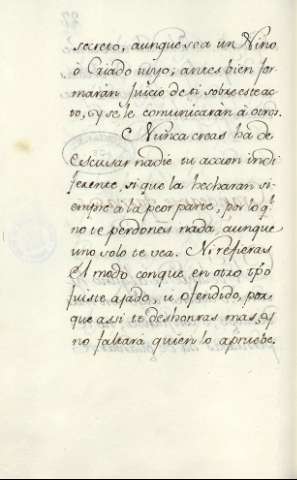 secreto, aunque sea un Niño
ò Criado tuyo; antes bien for
maràn juicio de ti sobre este ac
to, y se le comunicaràn à otros.
Nunca creas ha de
escusar nadie tu accion indi
ferente, si que la hecharàn si
empre à la peor parte, por lo q.
no te perdones nada, aunque
uno solo te vea. Ni refieras
el modo conque, en otro tpõ
fuiste ajado, u ofendido, por
que assi te deshonras mas, y
no faltarà quien lo apruebe.